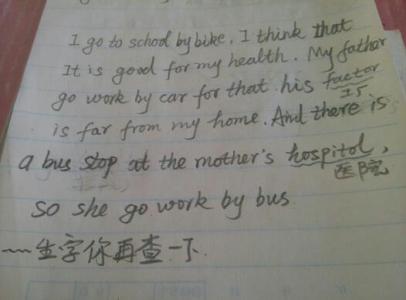 I go to school by bike. I think that
It is good for my health. My father
go work by car for that his factor
is far from my home. And there is
a bus stop at the mother's hospitol,
医院
so she go work by bus
~~生字你再查一下.